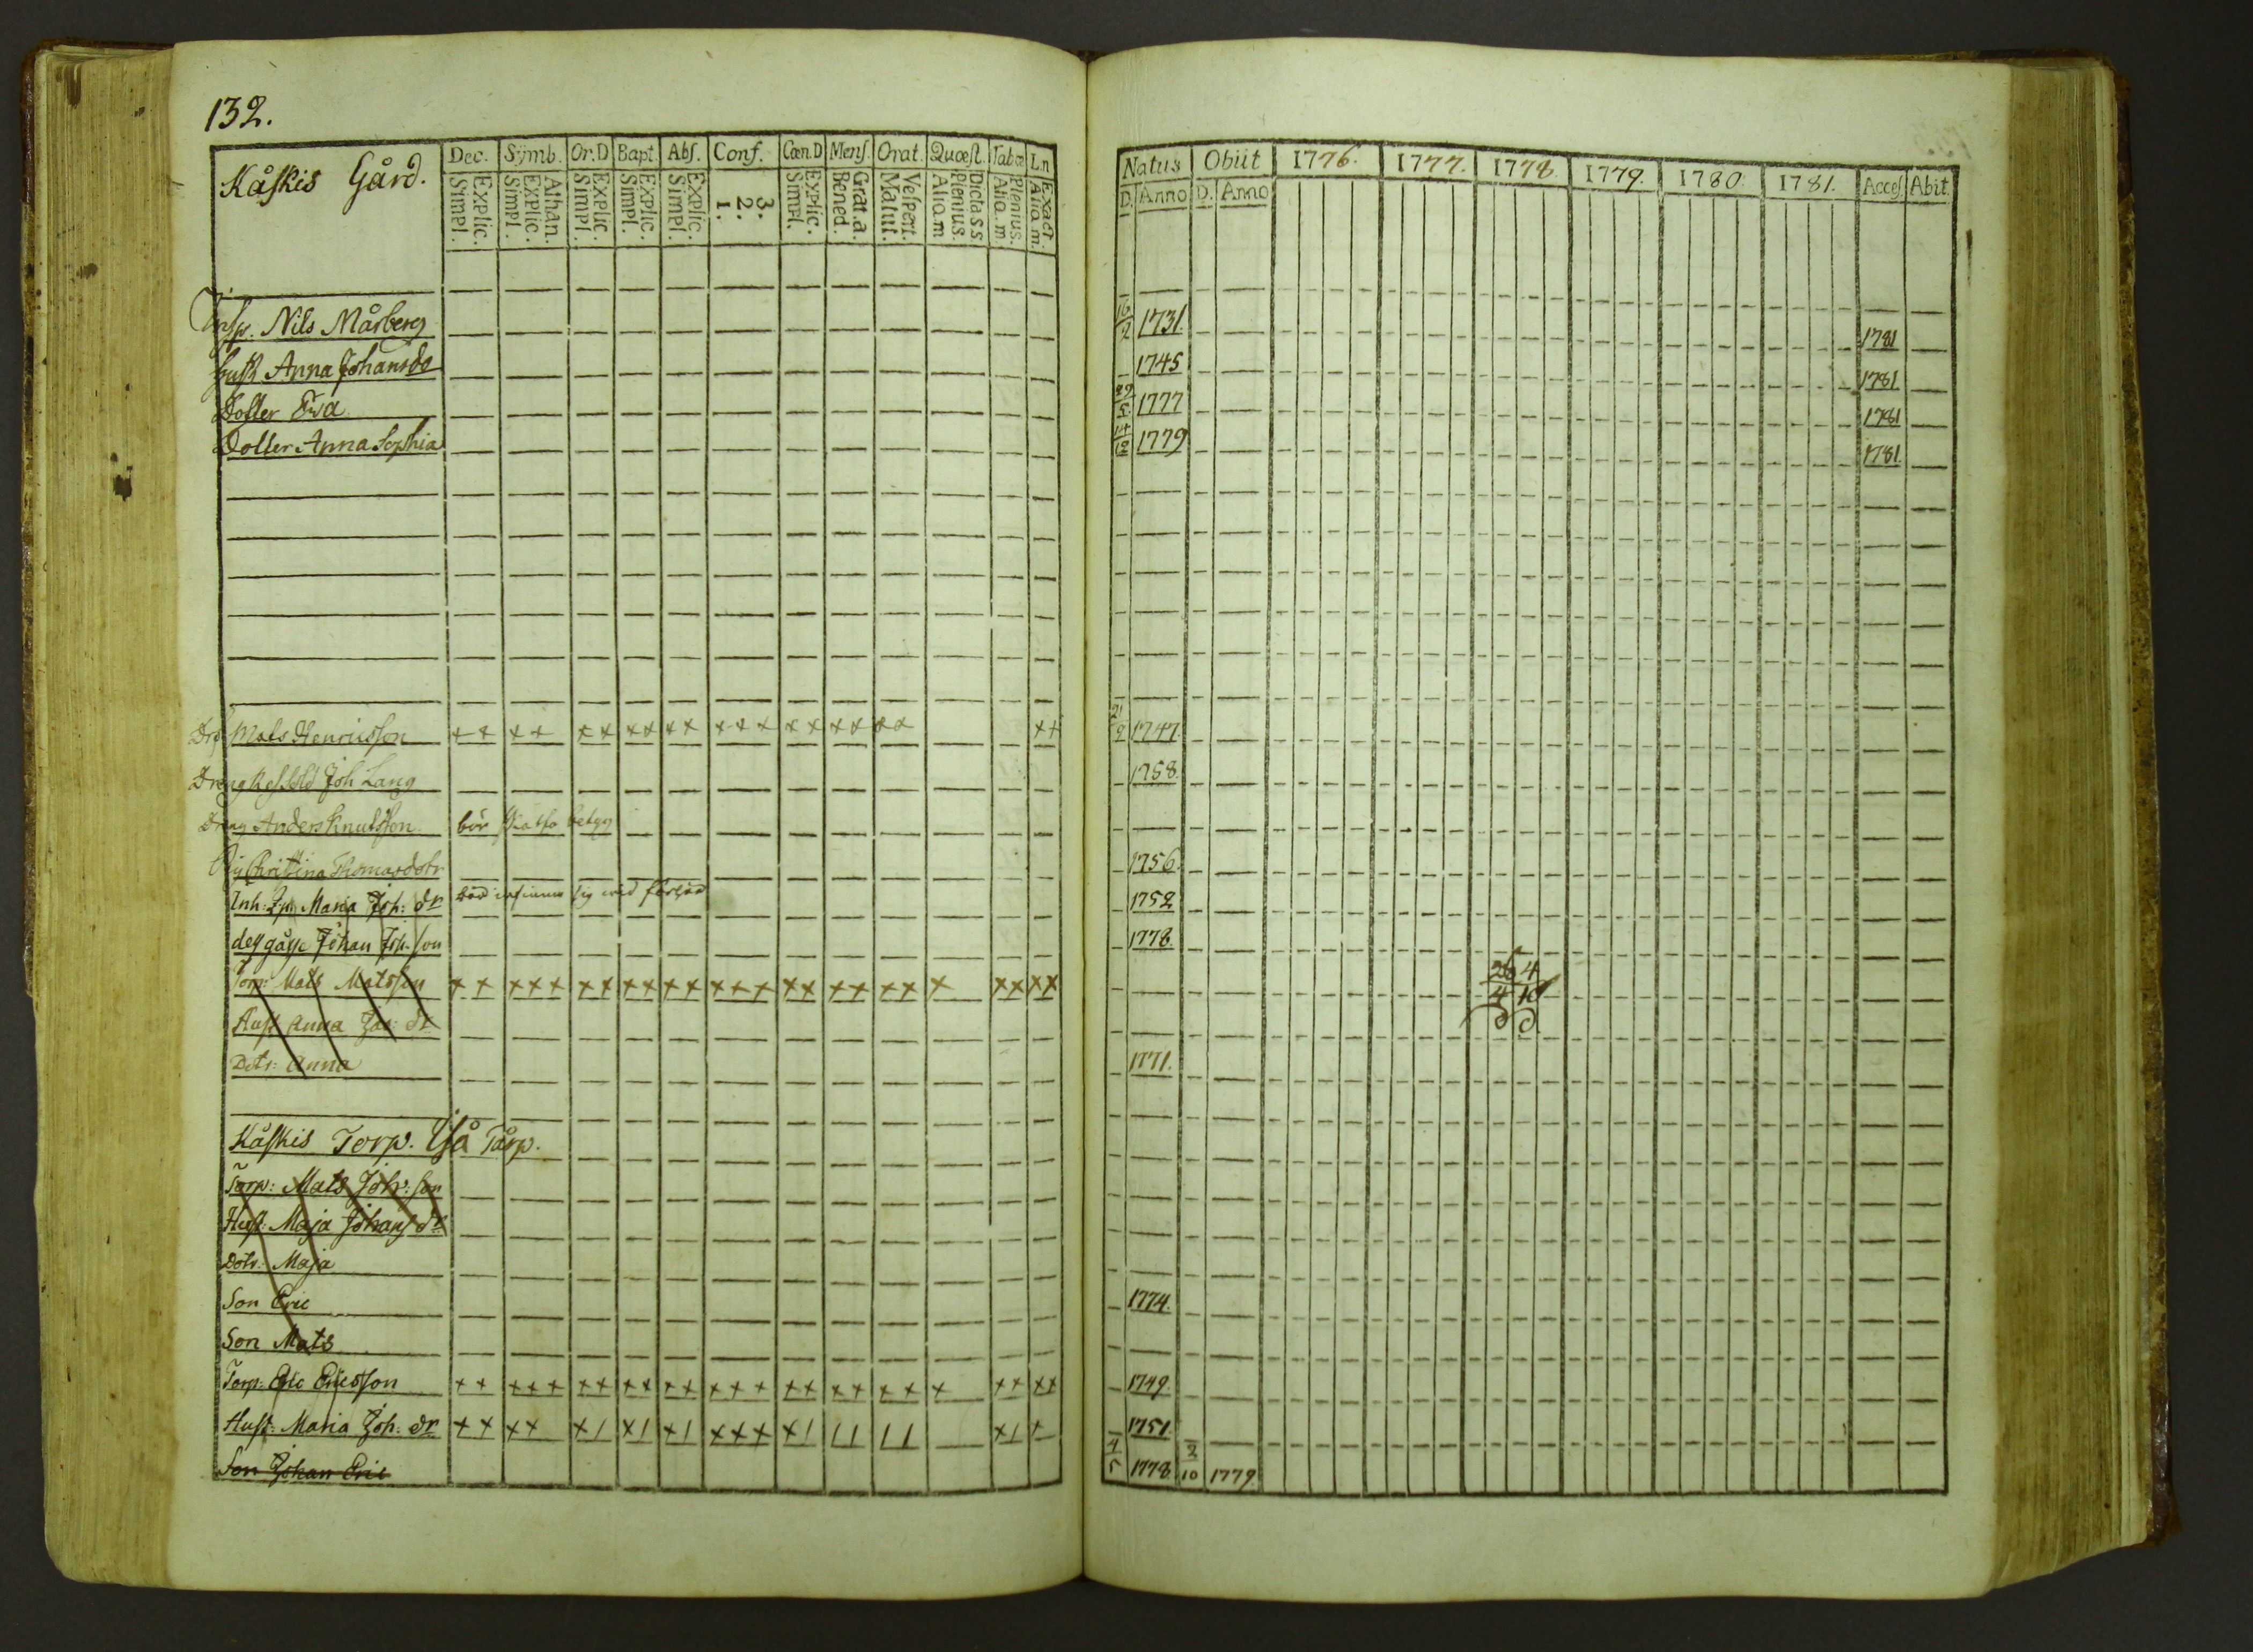 132.
Kåskis Gård.
Dec. Symb. Or.D Bapt. Abs. Conf. Cœn.D Mens. Orat. Quæst. Tabœ Ln
Simpl. Explic. Simpl. Explic. Athan. Simpl. Explic. Simpl. Explic. Simpl. Explic. 1. 2. 3. Simpl. Explic. Bened. Grat.a. Matut. Vespert. Aliq.m Plenius. Dicta SS Aliq.m. Plenius. Aliq.m. Exact.
Natus Obiit 1776. 1777. 1778. 1779. 1780. 1781. Acces. Abit.
D. Anno D. Anno
Insp. Nils Mårberg 16/2 1731. 1781
Hust Anna Johansdr 1745 1781.
Dotter Eva 29/5 1777 1781
Dotter Anna Sophia 14/12 1779 1781.
Mats Henricsson ×× ×× ×× ×× ×× ××× ×× ×× ×× ×× 21/9 1747.
Dreng Joh Lang 1758.
Dreng Anders Knutsson bör
Christina Thomasdotr 1756.
Inh: Maria Joh: dr 1752
Johan Joh. son 1778.
Torp: Mats Matsson ×× ××× ×× ×× ×× ××× ×× ×× ×× × ×× ×× 26/4 4/10
Hust Anna dr
Dotr: Anna 1771.
Kåskis Torp. Iså Tårp.
Torp: Mats Joh: son
Hust: Maja Johans dr
Dotr. Maja
Son Eric 1774.
Son Mats
Torp: Eric Ericsson ×× ××× ×× ×× ×× ××× ×× ×× ×× × ×× ×× 1749.
Hust: Maria Joh: dr ×× ×× ×/ ×/ ×/ ××× ×/ // // ×/ × 1751.
Son Johan Eric 4/5 1778. 3/10 1779.